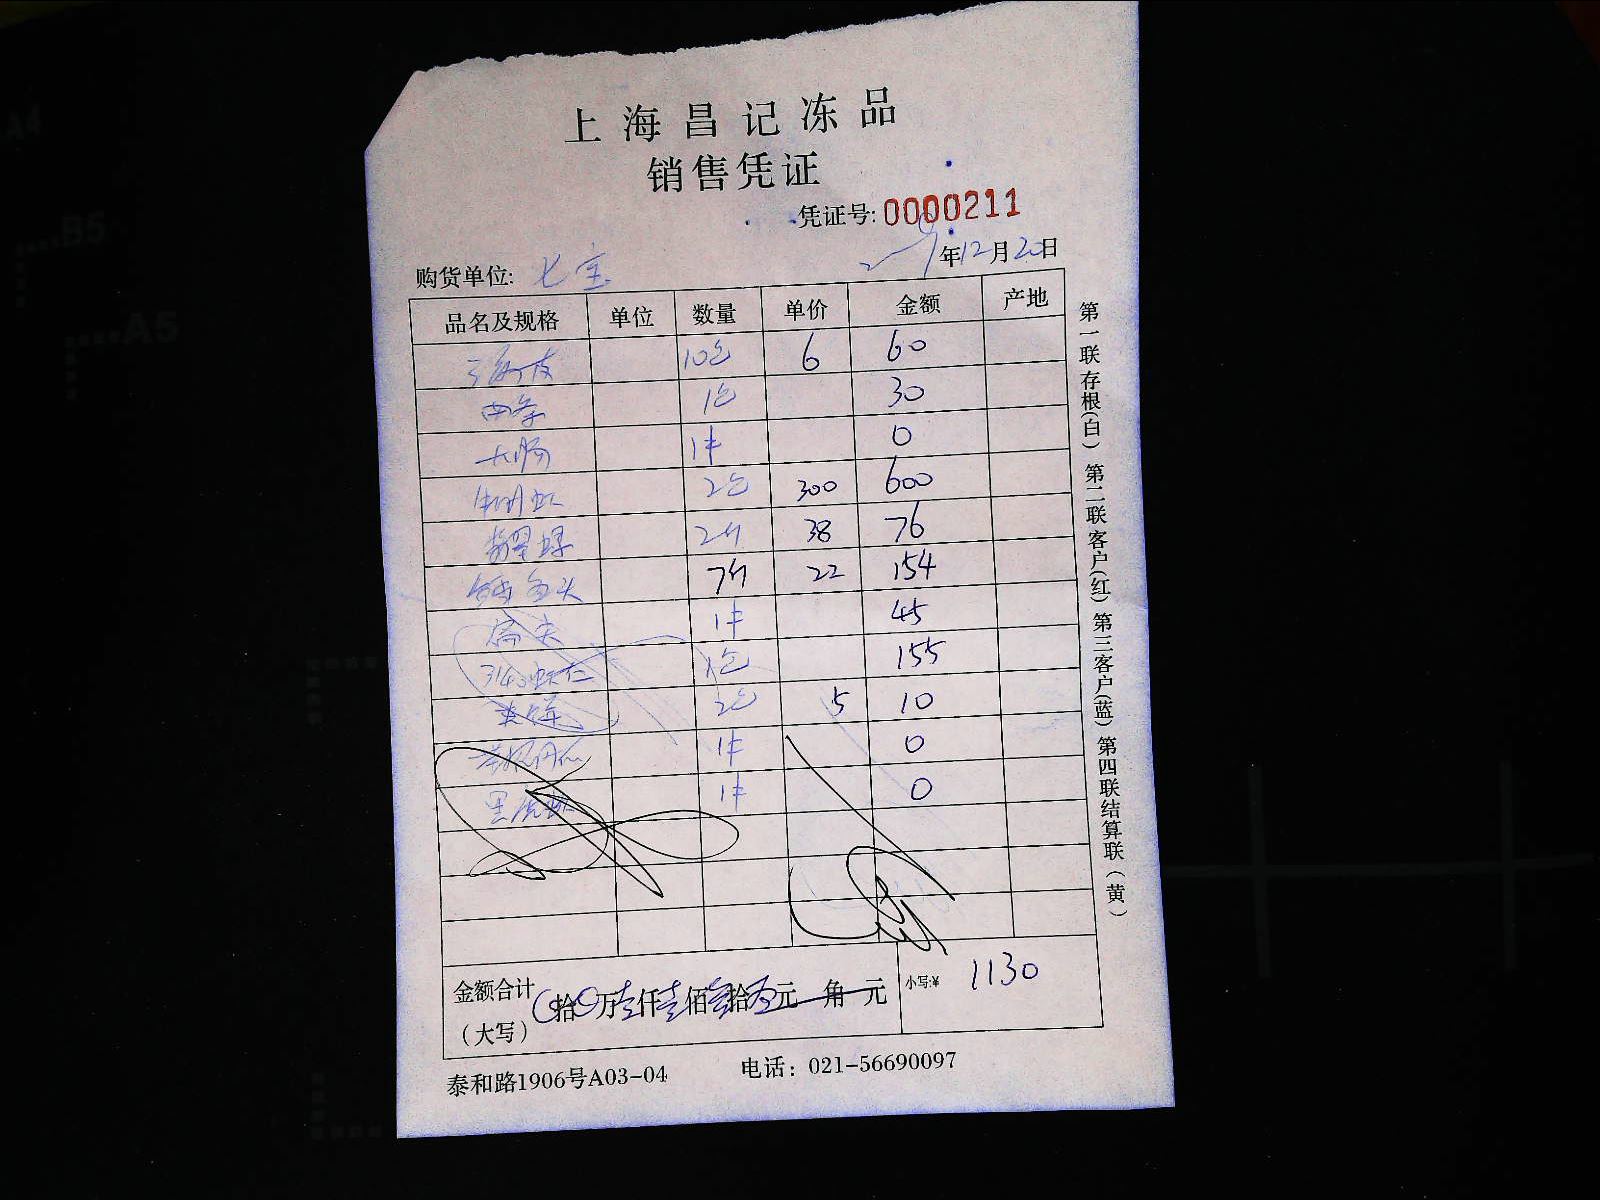 上海昌记冻品
销售凭证
凭证号: 0000211
购货单位: 七宝 年12月20日
品名及规格 单位 数量 单价 金额 产地
10包 6 60
西芹 1包 30
大肠 1件 0
2包 300 600
2斤 38 76
鱼头 7斤 22 154
扁尖 1件 45
3140虾仁 1包 155
2包 5 10
1件 0
黑虎虾 1件 0
金额合计(大写) 0拾0万壹仟壹佰叁拾元 角 元 小写:¥ 1130
泰和路1906号A03-04 电话: 021-56690097
第一联存根(白) 第二联客户(红) 第三客户(蓝) 第四联结算联(黄)